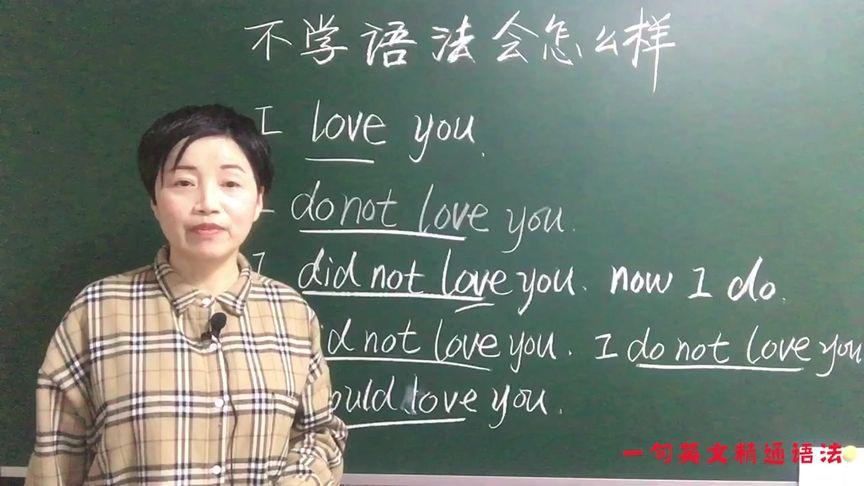 不学语法会怎么样
I love you.
do not love you.
I did not love you. now I do.
did not love you. I do not love you
ould love you.
一句英文精通语法